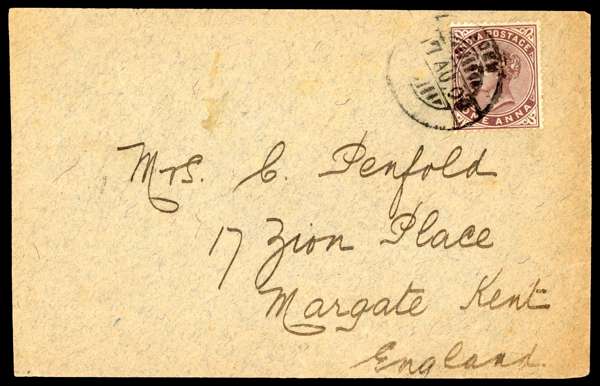 POSTAGE
17 AU
ONE ANNA
Mrs. C. Penfold
17 Zion Place
Margate Kent
England.